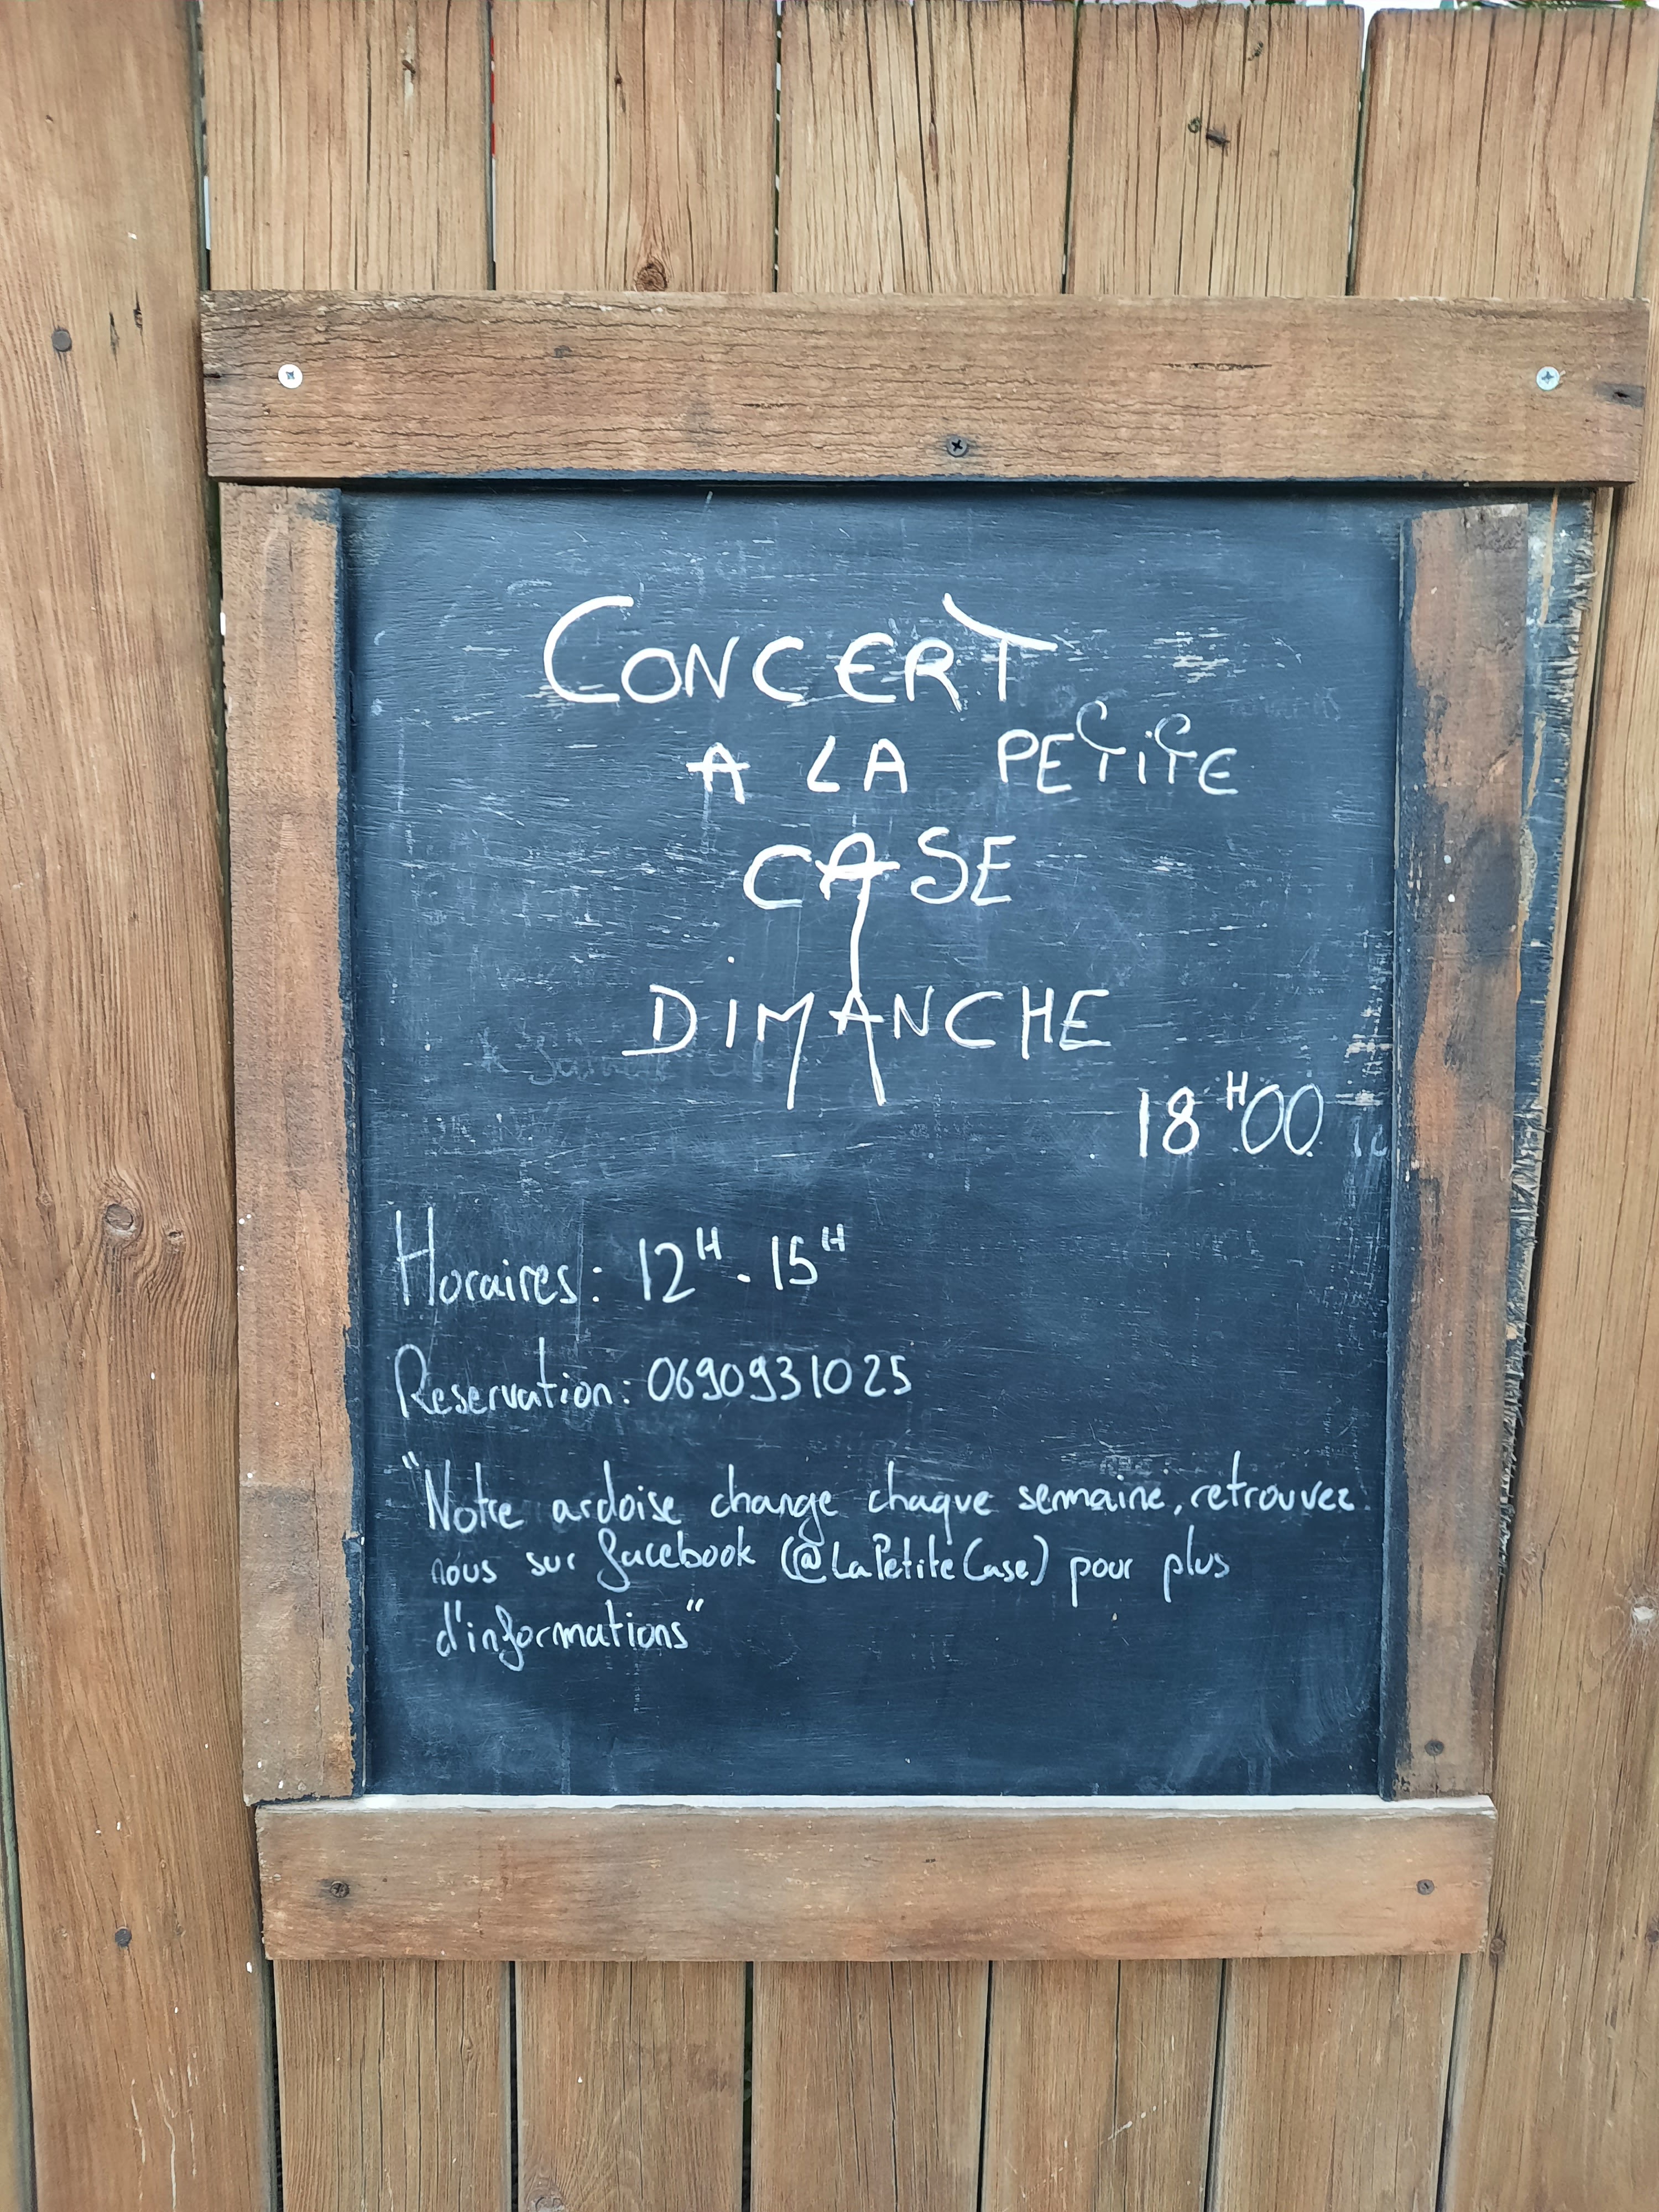 CONCERT
A LA PETITE
CASE
DIMANCHE
18H00
Horaires: 12H - 15H
Reservation: 0690931025
"Notre ardoise change chaque semaine, retrouvez
nous sur facebook (@LaPetiteCase) pour plus
d'informations"